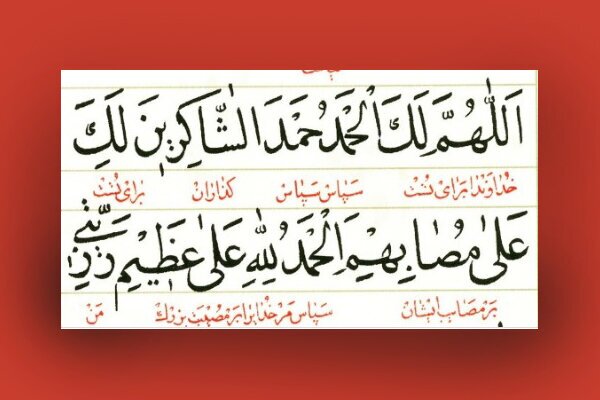 اَللّٰهُمَّ لَكَ الْحَمْدُ حَمْدَ الشّٰاكِرِينَ لَكَ
خداوندا برای تست سپاس سپاس گذاران برای تست
عَلىٰ مُصٰابِهِمْ اَلْحَمْدُ لِلّٰهِ عَلىٰ عَظِيمِ رَزِيَّتِي
بر مصائب ایشان سپاس مر خدا را بر مصیبت بزرگ من